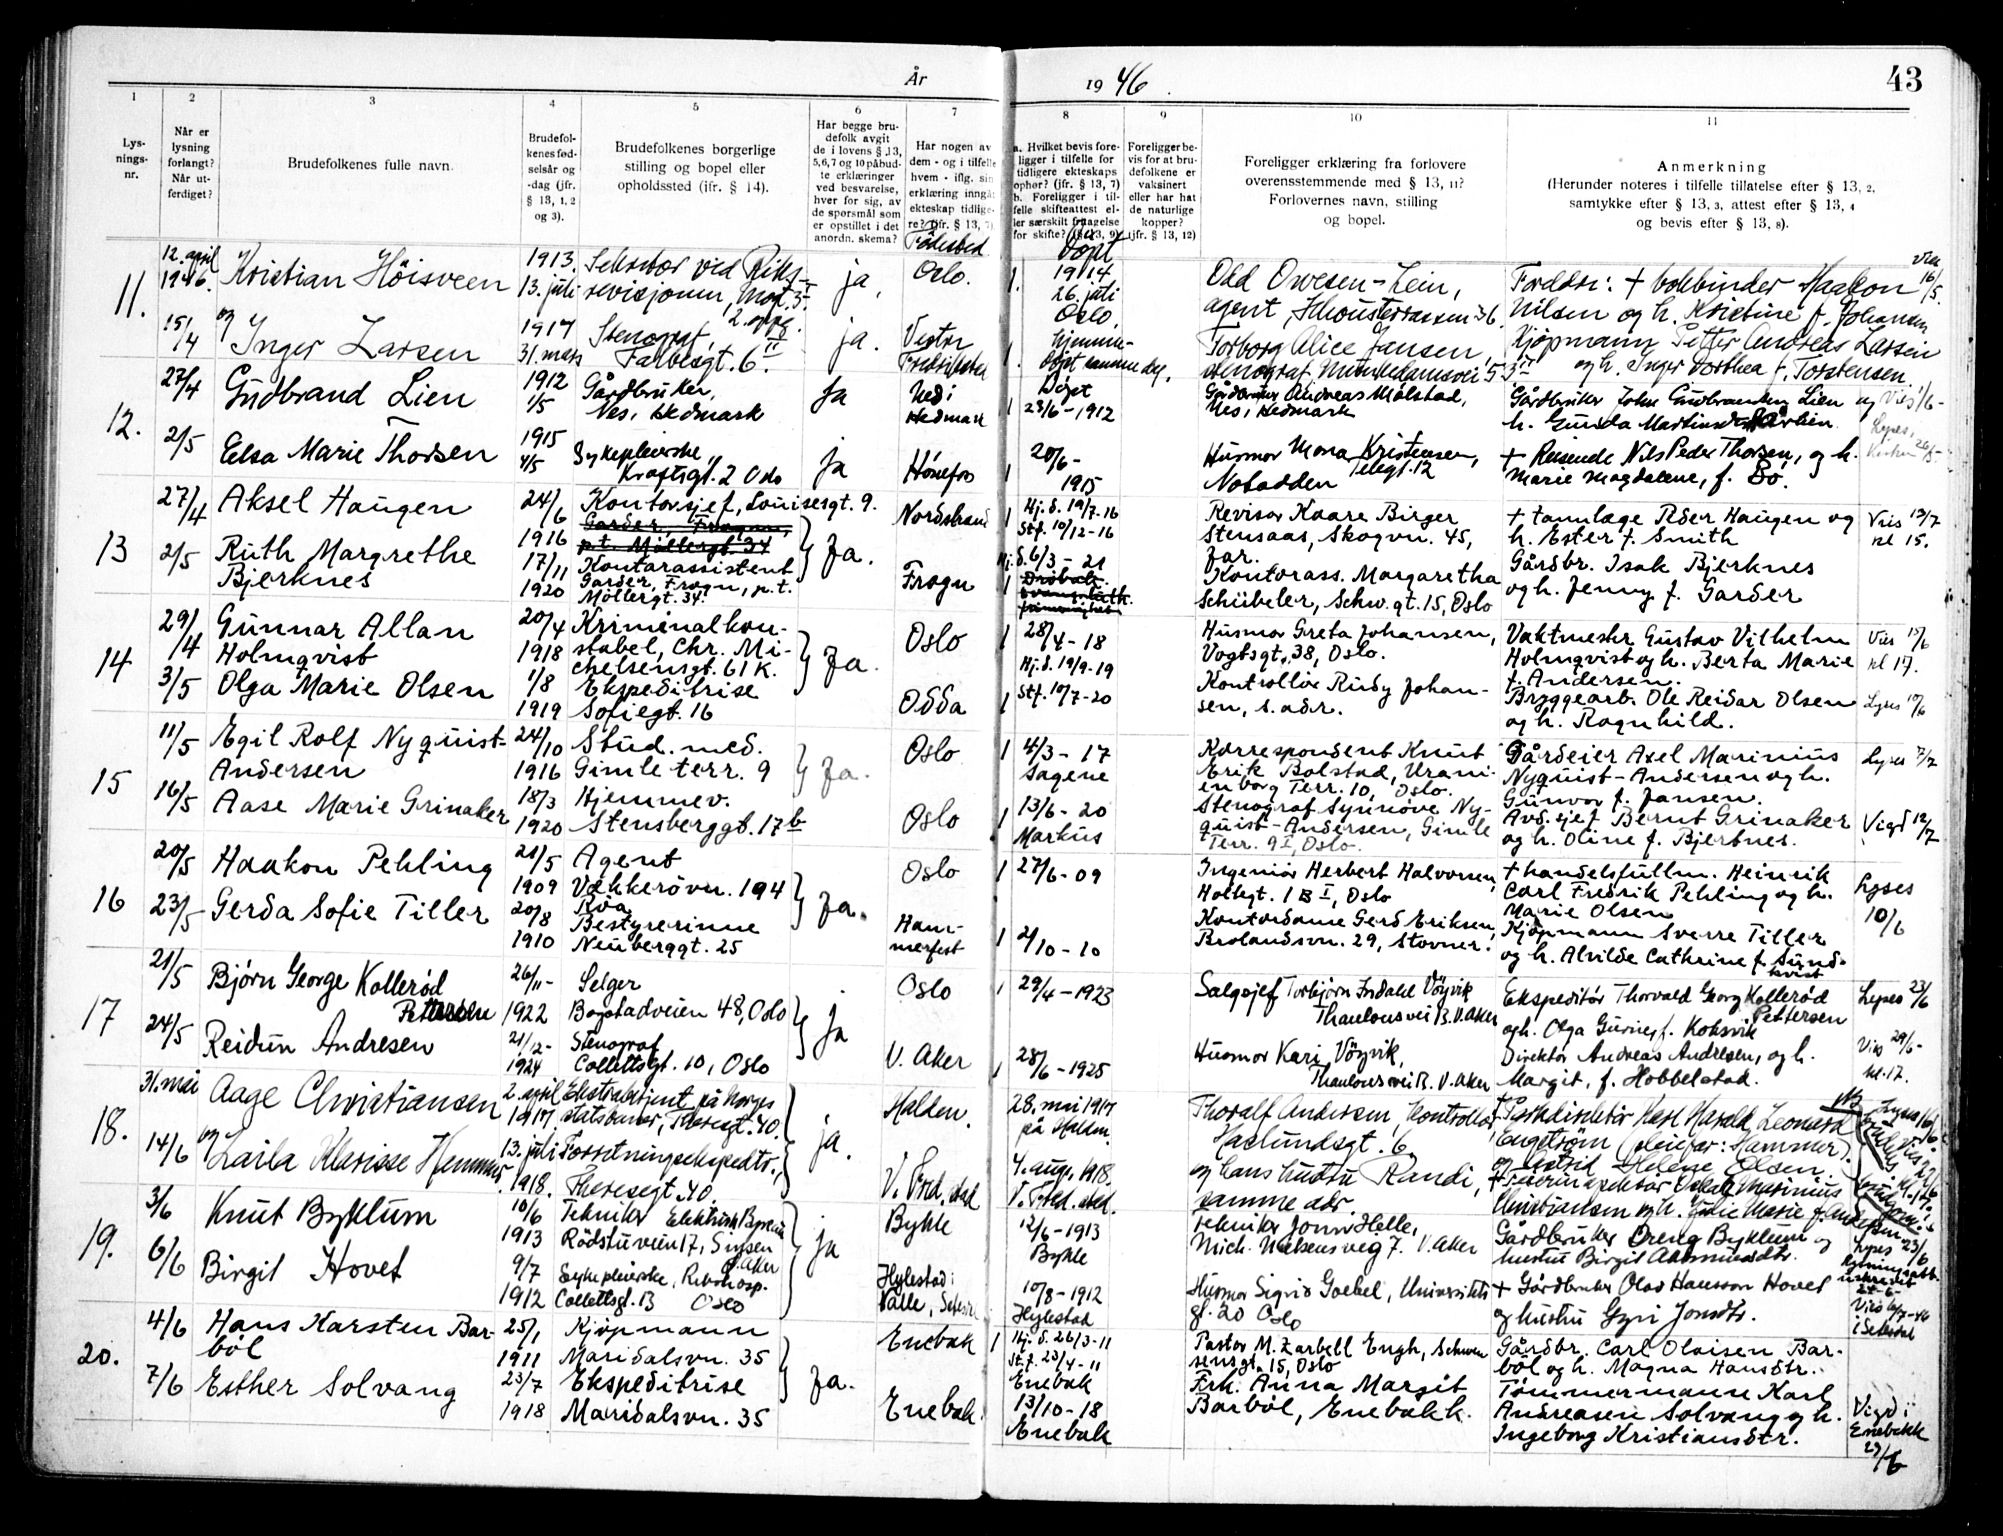 År 1946. 43
1 2 3 4 5 6 7 8 9 10 11
Lys-
nings-
nr.
Når er
lysning
forlangt?
Når ut-
ferdiget?
Brudefolkenes fulle navn.
Brudefol-
kenes fød-
selsår og
-dag (jfr.
§ 13, 1, 2
og 3).
Brudefolkenes borgerlige
stilling og bopel eller
opholdssted (ifr. § 14).
Har begge bru-
defolk avgit
de i lovens § 13,
5, 6, 7 og 10 påbud-
te erklæringer
ved besvarelse,
hver for sig, av
de spørsmål som
er opstillet i det
anordn. skema?
Har nogen av
dem - og i tilfelle
hvem - iflg. sin
erklæring inngåt
ekteskap tidlige-
re? (jfr. § 13, 7)
Fødested
a. Hvilket bevis fore-
ligger i tilfelle for
tidligere ekteskaps
ophør? (jfr. § 13, 7)
b. Foreligger i til-
felle skifteattest el-
ler særskilt
for skifte? (§ 13, 9)
Døpt
Foreligger be-
vis for at bru-
defolkene er
vaksinert
eller har hat
de naturlige
kopper?
(jfr. § 13, 12)
Foreligger erklæring fra forlovere
overensstemmende med § 13, 11?
Forlovernes navn, stilling
og bopel.
Anmerkning
(Herunder noteres i tilfelle tillatelse efter § 13, 2,
samtykke efter § 13, 3, attest efter § 13, 4
og bevis efter § 13, 8).
11. 12. april 1946. Kristian Höisveen 1913. 13. juli Sekretær ved Riks-
revisjonen, 2. oppg. ja, Oslo. 1. 1914 26. juli Oslo.
Odd Owesen-Lein,
agent,
Foreldre: + bokbinder Haakon
Nilsen og h. Kristine f. Johansen
Viet 16/5.
15/4 og Inger Larsen 1917 31. mars Stenograf, ja. Vestre
Fredrikstad 1. hjemme-
døpt samme dag.
Torborg Alice Jansen,
stenograf, Munkedamsvei 53
Kjøpmann Petter Andreas Larsen
og h. Inger Dorthea f. Torstensen.
12. 27/4 Gudbrand Lien 1912 1/5 Gårdbruker,
Nes, Hedmark ja Nes i
Hedmark 1 Døpt
23/6-1912
Gårdbruker Andreas Mælstad,
Nes, Hedmark
Gårdbruker John Gudbrandsen Lien og
h. Gunda
2/5 Elsa Marie Thorsen 1915 4/5 Sykepleierske
Kraftsgt. 2 Oslo ja Hönefos 1 20/6-
1915
Husmor Mona Kristensen,
Telegt. 12
Notodden
+ Reisende Nils Peder Thorsen, og h.
Marie Magdalene, f. Bö.
13 27/4 Aksel Haugen 24/6 1916 Kontorsjef, Louisesgt. 9.
Garder, Frogn,
p.t. Möllergt. 34
Ja. Nordstrand 1 Hj. d. 19/7-16
Stf. 10/12-16
Revisor Kaare Birger
Stensaas, Skogvn. 45,
Jar.
+ tannlæge Peder Haugen og
h. Ester f. Smith
Vies 13/7
kl 15.
2/5 Ruth Margrethe
Bjerknes 17/11 1920 Kontorassistent
Garder, Frogn, p.t.
Möllergt. 34. Frogn 1 Hj. d. 6/3-21
Drøbak.
Kontorass. Margaretha
Schübeler, Schw.gt. 15, Oslo
Gårdbr. Isak Bjerknes
og h. Jenny f. Garder
14 29/4 Gunnar Allan
Holmqvist 20/4 1918 Kriminalkon-
stabel, Chr. Mi-
chelsensgt. 61 K. Ja. Oslo 1 28/4-18
Husmor Greta Johansen,
Vogtsgt. 38, Oslo.
Vaktmestr. Gustav Vilhelm
Holmqvist og h. Berta Marie
f. Andersen.
Vies 15/6
kl 17.
3/5 Olga Marie Olsen 1/8 1919 Ekspeditrise
Sofiegt. 16 Odda 1 Hj. d. 19/9-19
Stf. 10/7-20
Kontrollör Rudy Johan-
sen, s. adr.
Bryggearb. Ole Reidar Olsen
og h. Ragnhild.
Lyses 10/6
15 11/5 Egil Rolf Nyquist-
Andersen 24/10 1916 Stud. med.
Gimle terr. 9 Ja. Oslo 1 4/3-17
Sagene
Korrespondent Knut
Erik Bolstad, Urani-
enborg Terr. 10, Oslo.
Gårdeier Axel Marinius
Nyquist-Andersen og h.
Gunvor f. Jansen.
Lyses 7/7
16/5 Aase Marie Grinaker 18/3 1920 Hjemmev.
Stensberggt. 17 b Oslo 1 13/6-20
Markus
Stenograf Synnöve Ny-
quist-Andersen, Gimle
Terr. 9 I, Oslo.
Avd. sjef Bernt Grinaker
og h. Oline f. Bjerknes.
Vigd 12/7
16 20/5 Haakon Pehling 21/5 1909 Agent
Vækkerövn. 194
Röa Ja. Oslo 1 27/6-09
Ingeniör Herbert Halvorsen,
Holtegt. 1 B I, Oslo
+ handelsfullm. Heinrik
Carl Fredrik Pehling og h.
Marie Olsen
Lyses
10/6
23/5 Gerda Sofie Tiller 20/8 1910 Bestyrerinne
Neuberggt. 25 Ham-
merfest 1 2/10-10
Kontordame Gerd Eriksen,
Brolandsvn. 29, Stovner.
Kjøpmann Sverre Tiller
og h. Alvilde Cathrine f. Sund-
kvist
17 21/5 Björn George Kolleröd
Pettersen 26/11- 1922 Selger
Bogstadveien 48, Oslo ja Oslo 1 29/4-1923
Salgsjef Torbjörn Indahl Vöyvik
Thaulowsvei B. V. Aker
Ekspeditör Thorvald Georg Kolleröd
Pettersen
og h. Olga Gurine, f. Koksvik
Lyses 23/6
24/5 Reidun Andresen 21/12- 1924 Stenograf
Collettsgt. 10, Oslo V. Aker 1 28/6-1925
Husmor Kari Vöyvik,
Thaulowsvei B. V. Aker
Direktör Andreas Andresen, og h.
Margit, f. Hobbelstad.
Vies 29/6-
kl. 17.
18. 31. mai Aage Christiansen 2. april 1917. Ekstrabetjent på Norges
statsbaner, Theresgt. 40. ja. Halden. 28. mai 1917
på Halden.
Thoralf Andersen, kontrollör,
Haslundsgt. 6.
Karl Harald Leonard
Engström (pleiefar: Hammer).
og Astrid Helene Olsen.
14/6 og Laila Klarisse Hammer. 13. juli 1918. Forretningsekspeditr.,
Theresegt. 40. V. Fred.stad 4. aug. 1918.
V. Fred.stad.
og hans hustru Randi,
samme adr.
Oskar Marinius
Christiansen og h. Julie Marie f. Andersen
19. 3/6 Knut Byklum 10/6 1913 Tekniker Elektrisk Byrå
Rödstuveien 17, Sinsen
V. Aker ja Bykle 12/6-1913
Bykle
tekniker Jonn Helle,
Mich. Nielsens vei 7. V. Aker
Gårdbruker Dreng Byklum og
hustru Birgit Aasmundsdtr.
Lyses 23/6
6/6 Birgit Hovet 9/7 1912 Sykepleierske, Rikshosp.
Collettsgt. 13 Oslo Hylestad i
Valle, 10/8-1912
Hylestad
Husmor Sigrid Goebel, Universitets
gt. 20 Oslo
+ Gårdbruker Olav Hansson Hovet
og hustru Gyri Jonsdtr.
20. 4/6 Hans Karsten Bar-
böl 25/1 1911 Kjøpmann
Maridalsvn. 35 Ja. Enebak 1 Hj. d. 26/3-11
St.f. 23/4-11
Enebak
Pastor M. Zarbell Engh, Schwen
sensgt. 15, Oslo
Gårdbr. Carl Olaisen Bar-
böl og h. Magna Hansdtr.
7/6 Esther Solvang 23/7 1918 Ekspeditrise
Maridalsvn. 35 Enebak. 13/10-18
Enebak
Frk. Anna Margit
Barböl, Enebakk.
Tømmermann Karl
Andreasen Solvang og h.
Ingeborg Kristiansdtr.
Vigd i
Enebakk
29/6